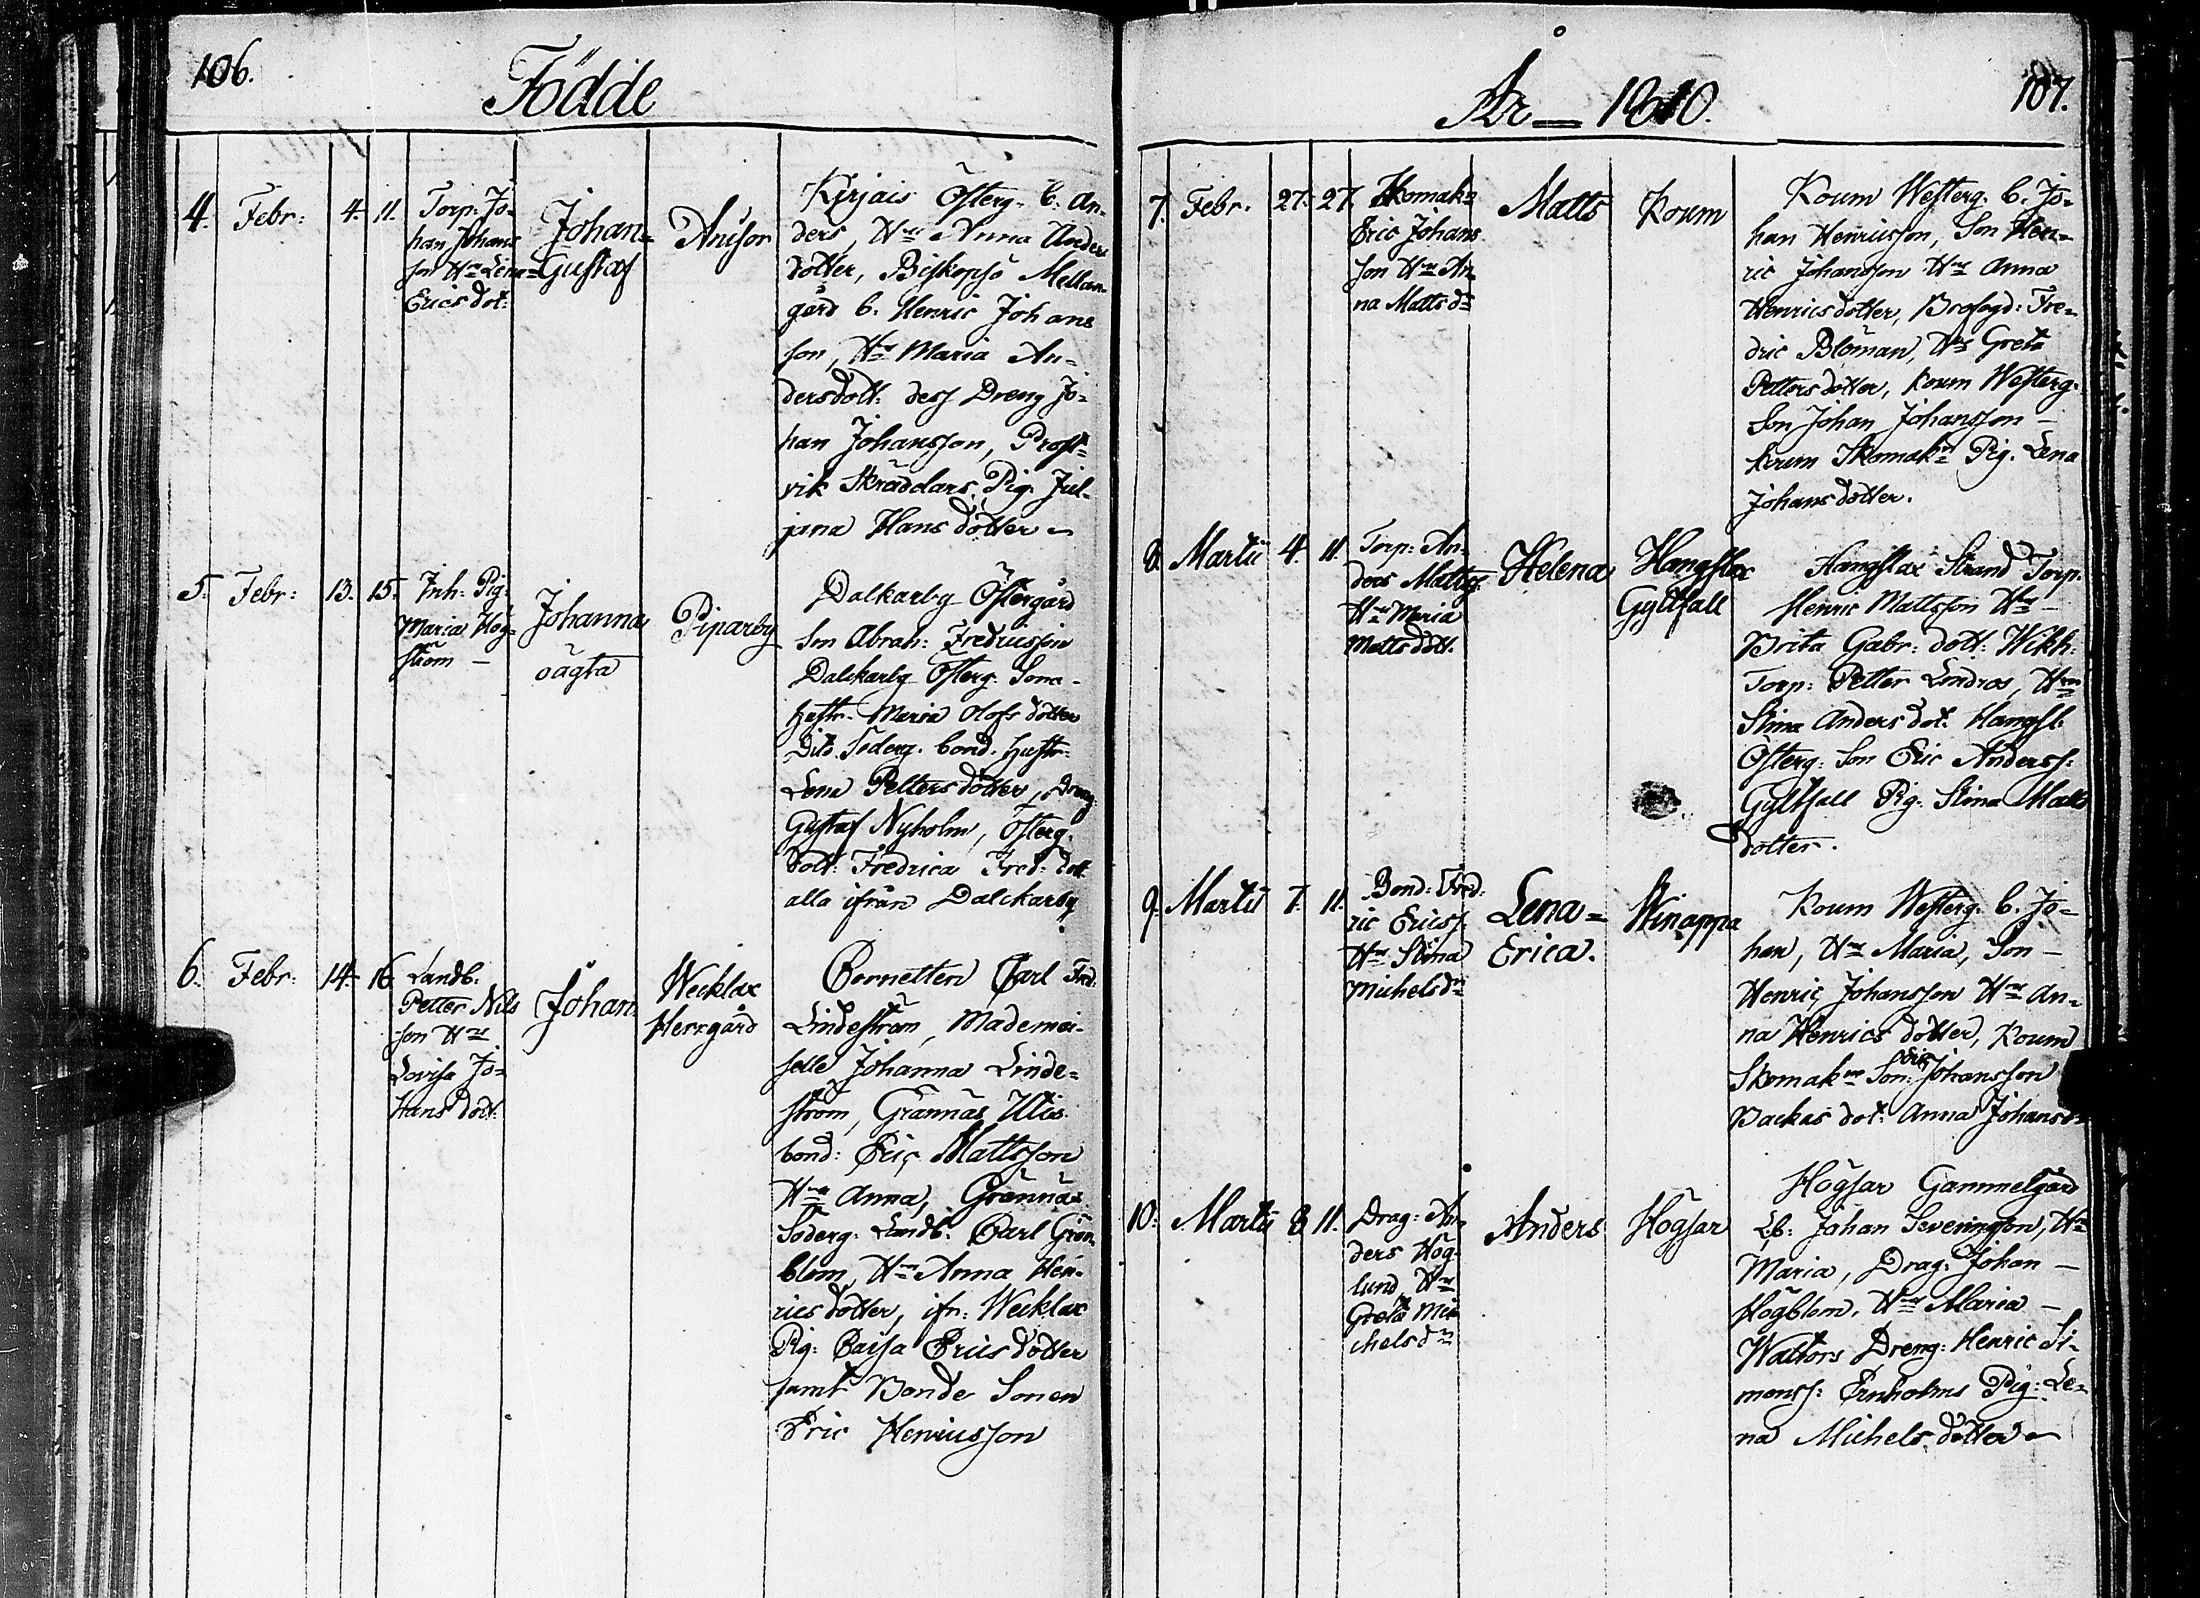 106.
Födde
4. Febr: 4. 11.
Torp: Jo-
han Johans
son Hu Lena
Erics dot:
Johan=
Gustaf
Anisor
Kirjais Österg. b. An-
ders, Hu Anna Anders
dotter, Biskopsö Mellan-
gård b. Henric Johans
son, Hu Maria An-
dersdott: dess Dreng Jo-
han Johansson, Prost-
vik Skräddars Pig. Jul-
jana Hans dotter
5. Febr: 13. 15.
Inh: Pig:
Maria Hög-
ström –
Johanna
oägta
Piparby
Dalkarby Östergård
Son Abrah: Fredricsson
Dalckarby Österg. Sona-
hustr. Maria Olofs dotter
Dito Söderg. bond. hustr.
Lena Petters dotter, Dreng
Gustaf Nyholm, Österg.
dott: Fredrica Fred: dott
alla ifrån Dalckarby
6. Febr: 14. 16.
Landb.
Petter Nils
son Hu
Lovisa Jo-
hans dot:
Johan
Wecklax
Herrgård
Cornetten Carl Fred:
Lindeström, Mademoi-
selle Johanna Linde=
ström, Grännäs Utis
bond: Eric Mattsson
Hu Anna, Grännäs
Söderg. Landb: Carl Grön-
blom, Hu Anna Hen-
rics dotter, ifr: Wecklax
Pig: Caisa Erics dotter
samt Bonde Sonen
Eric Henricsson
År – 1810.
107.
7. Febr. 27. 27.
Skomak=
Eric Johans
son Hu An
na Matts d:
Matts
Koum
Koum Westerg. b. Jo-
han Henricsson, Son Hen-
ric Johansson Hu Anna
Henrics dotter, Brofogd: Fre-
dric Bloman, Hu Greta
Petters dotter, Koum Westerg.
Son Johan Johansson –
Koum Skomak: Pig. Lena
Johans dotter.
8. Martii 4. 11.
Torp: An-
ders Mattss.
Hu Maria
Matts dott.
Helena
Hangslax
Gyltfall
Hangslax Strand Torp.
Henric Mattsson Hu –
Brita Gabr: dott: Wikh:
Torp: Petter Lindros, Hu
Stina Anders dot. Hangsl.
Österg: Son Eric Anderss:
Gyltfall Pig. Stina Matts
dotter.
9. Martii 7. 11.
Bond: Fred:
ric Ericss.
Hu Stina
Michels d:
Lena=
Erica.
Winappa
Koum Westerg. b. Jo-
han, Hu Maria, Son –
Henric Johansson Hu An-
na Henrics dotter, Koum
Skomak: Son: Eric Johansson
Backas dot: Anna Johans d:
10. Martii 8 11.
Drag: An-
ders Hög-
lund Hu
Greta Mi-
chels d:
Anders
Högsar
Högsar Gammelgård
Lb: Johan Severinsson, Hu
Maria, Drag: Johan –
Högblom, Hu Maria –
Waltors Dreng: Henric Si-
monss: Ernholms Pig: Le-
na Michels dotter